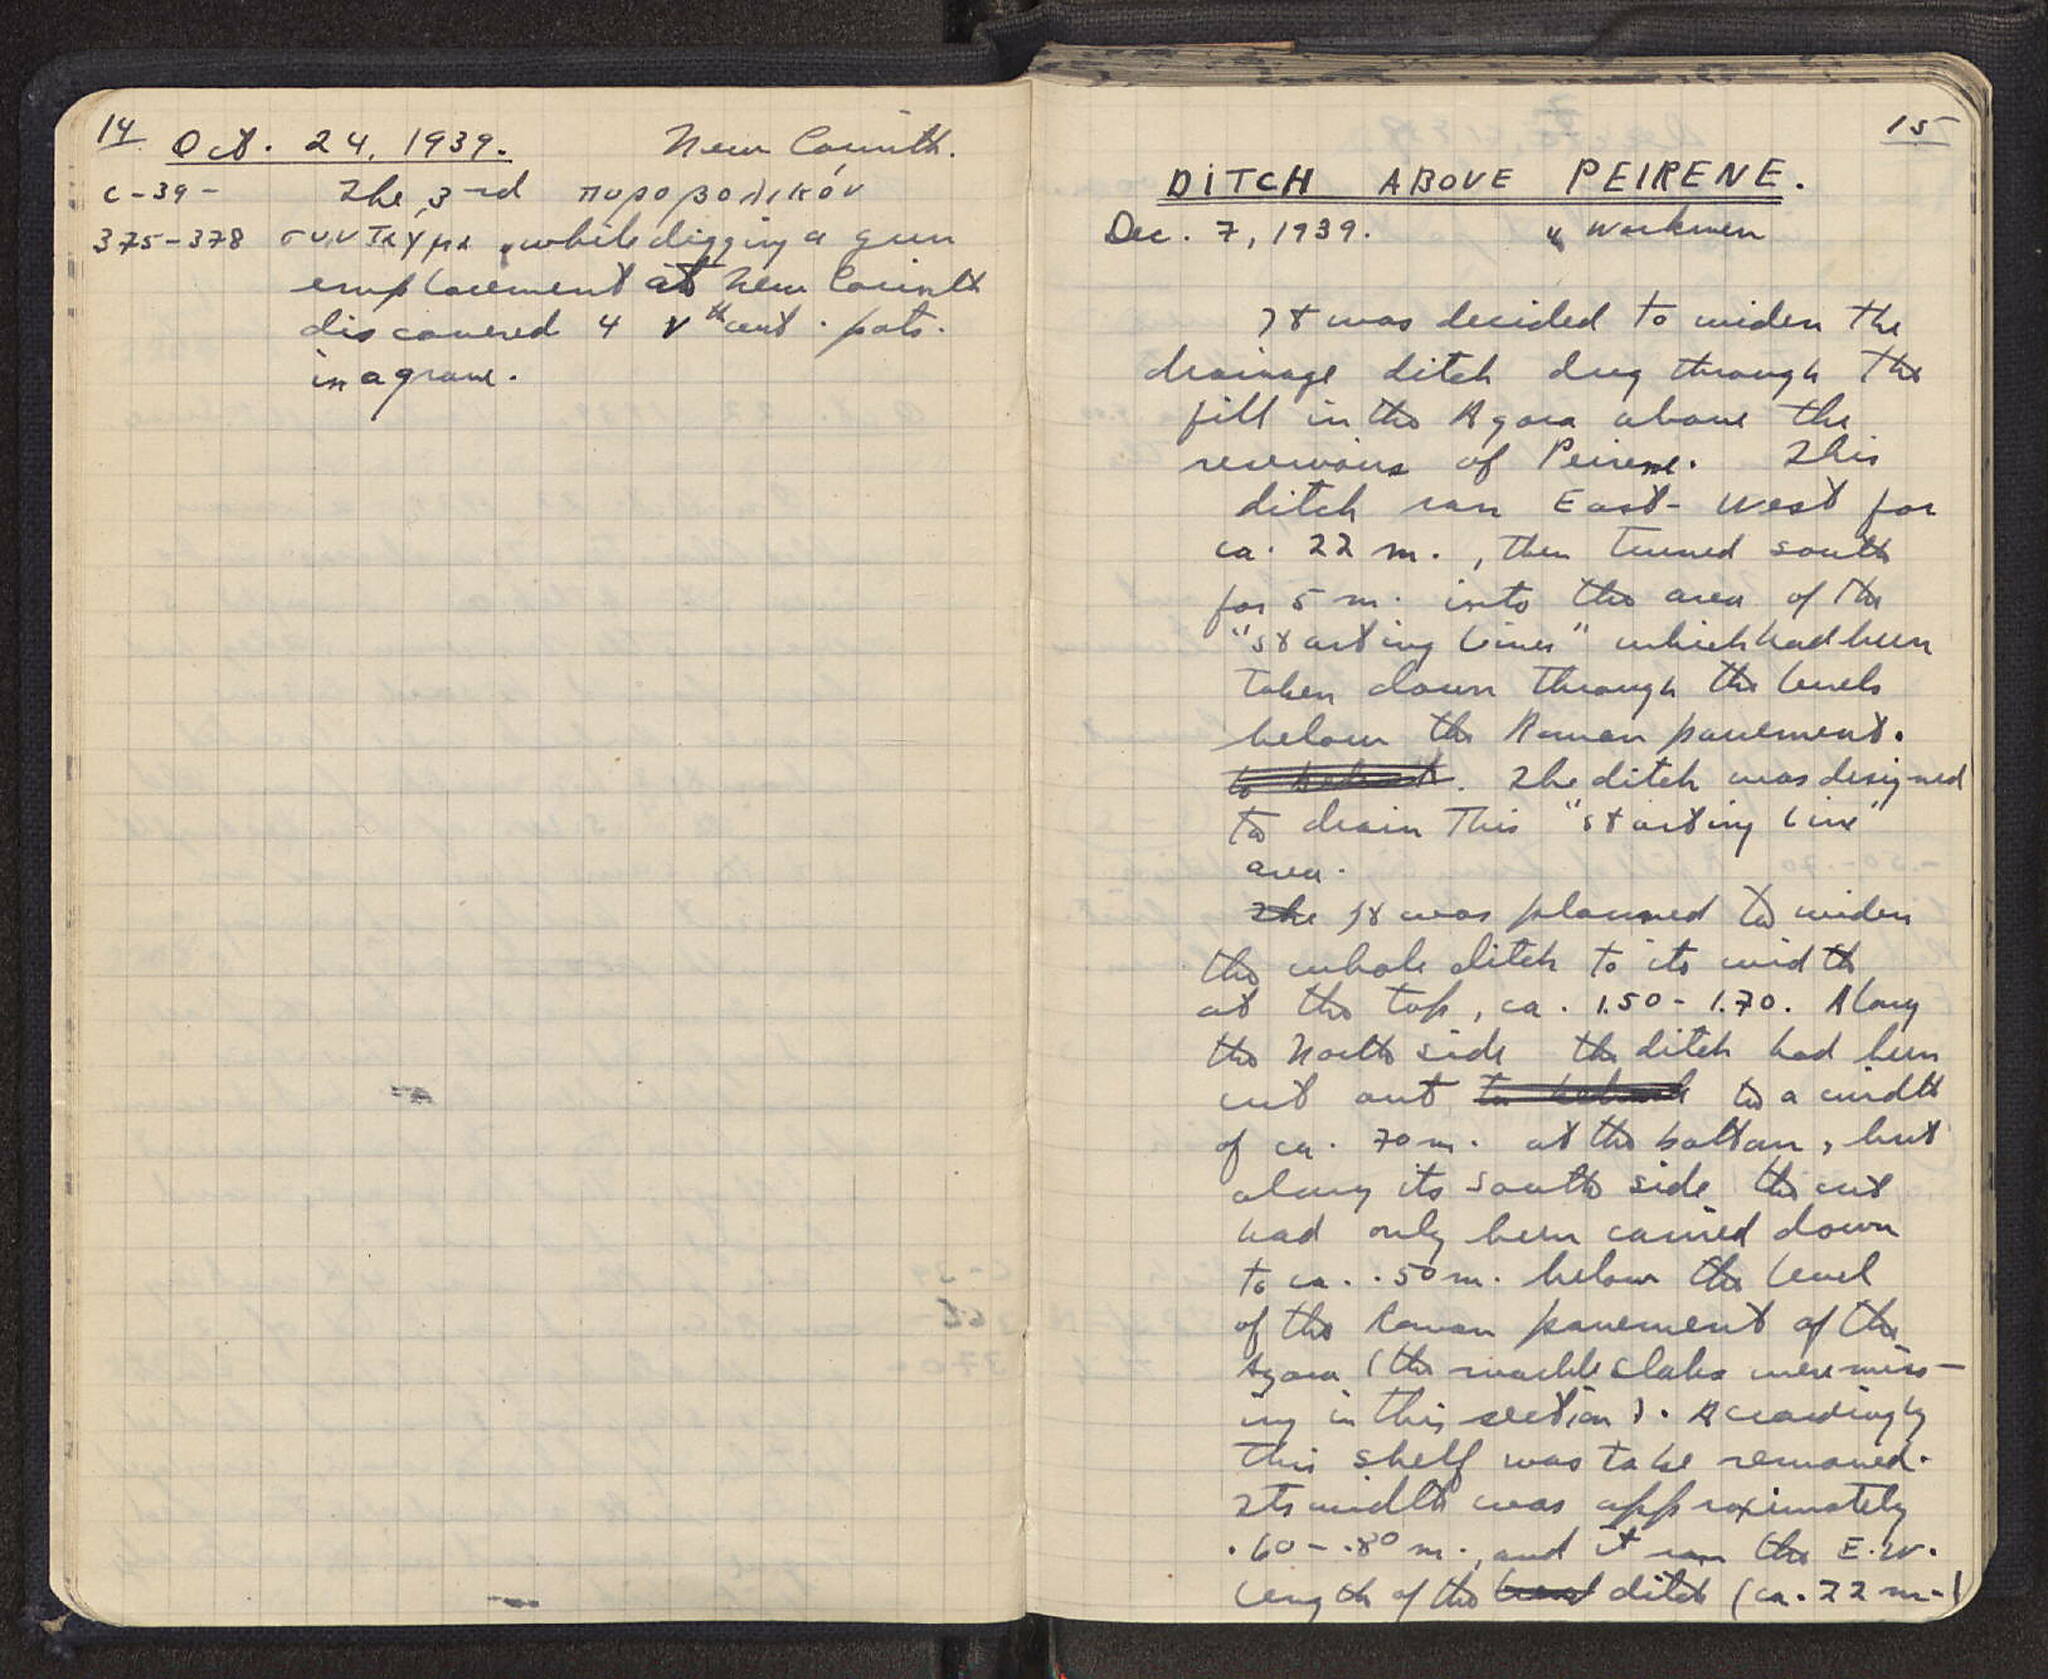 14
Oct. 24, 1939. New Corinth.
C-39- The 3rd πυροβολικόν
375-378 σύνταγμα, while digging a gun
emplacement at New Corinth
discovered 4 Vth cent. pots.
in a grave.
15
DITCH ABOVE PEIRENE.
Dec. 7, 1939. 4 workmen
It was decided to widen the
drainage ditch dug through the
fill in the Agora above the
reservoirs of Peirene. This
ditch ran East-West for
ca. 22 m., then turned south
for 5 m. into the area of the
"starting lines" which had been
taken down through the levels
below the Roman pavement.
The ditch was designed
to drain this "starting line"
area.
The It was planned to widen
the whole ditch to its width
at the top, ca. 1.50-1.70. Along
the North side the ditch had been
cut out to a width
of ca. 70 m. at the bottom, but
along its south side the cut
had only been carried down
to ca. .50 m. below the level
of the Roman pavement of the
Agora (the marble slabs were miss-
ing in this section). Accordingly
this shelf was to be removed.
Its width was approximately
.60-.80 m., and it ran the E.W.
length of the ditch (ca. 22 m.)